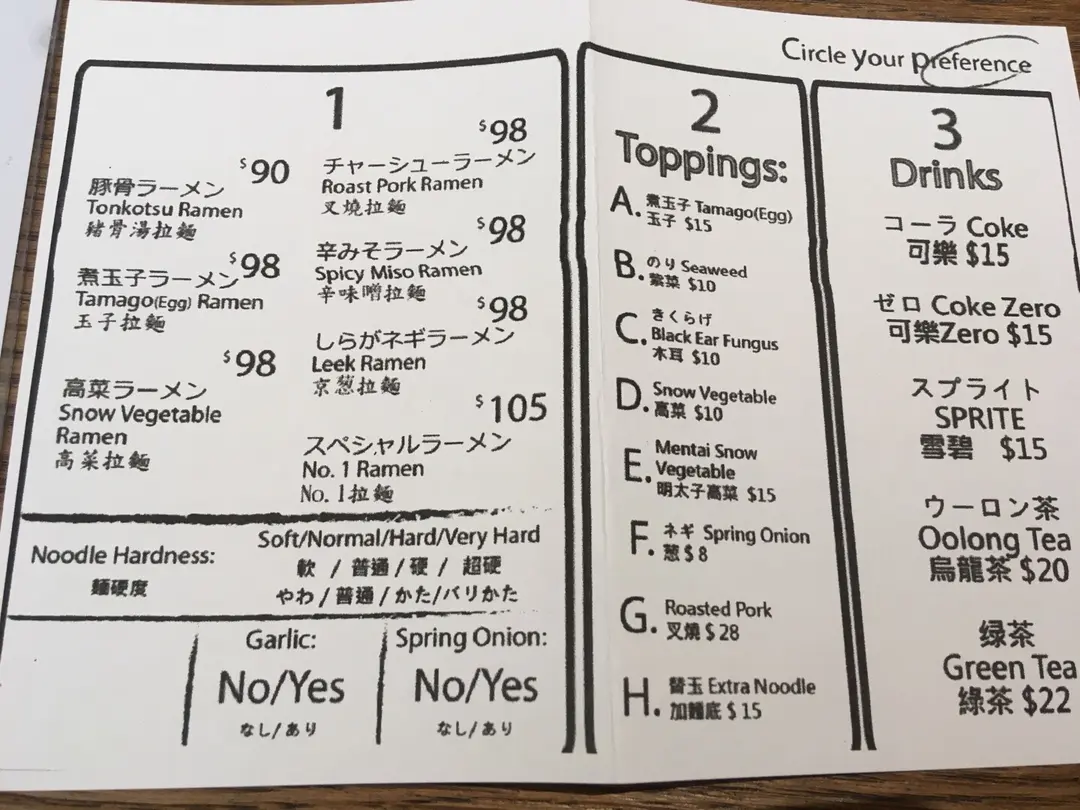 Circle your preference
1
$90
豚骨ラーメン
Tonkotsu Ramen
豬骨湯拉麵
$98
煮玉子ラーメン
Tamago(Egg) Ramen
玉子拉麵
$98
高菜ラーメン
Snow Vegetable
Ramen
高菜拉麵
$98
チャーシューラーメン
Roast Pork Ramen
叉燒拉麵
$98
辛みそラーメン
Spicy Miso Ramen
辛味噌拉麵
$98
しらがネギラーメン
Leek Ramen
京葱拉麵
$105
スペシャルラーメン
No. 1 Ramen
No. 1拉麵
Noodle Hardness:
麵硬度
Soft/Normal/Hard/Very Hard
軟 / 普通 / 硬 / 超硬
やわ / 普通 / かた/バリかた
Garlic:
No/Yes
なし/あり
Spring Onion:
No/Yes
なし/あり
2
Toppings:
A. 煮玉子 Tamago(Egg)
玉子 $15
B. のり Seaweed
紫菜 $10
C. きくらげ
Black Ear Fungus
木耳 $10
D. Snow Vegetable
高菜 $10
E. Mentai Snow
Vegetable
明太子高菜 $15
F. ネギ Spring Onion
葱 $ 8
G. Roasted Pork
叉燒 $ 28
H. 替玉 Extra Noodle
加麵底 $ 15
3
Drinks
コーラ Coke
可樂 $15
ゼロ Coke Zero
可樂Zero $15
スプライト
SPRITE
雪碧 $15
ウーロン茶
Oolong Tea
烏龍茶 $20
绿茶
Green Tea
綠茶 $22